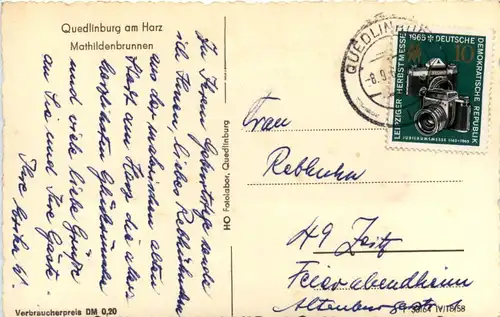 Quedlinburg am Harz
Mathildenbrunnen
Zu Ihrem Geburtstage sende
ich Ihnen, liebes Rebhühnchen
aus der malerischen alten
Stadt am Harz die aller-
herzlichsten Glückwünsche
und viele liebe Grüße
an Sie und Ihre Gäste.
Ihre
Verbraucherpreis DM 0,20
HO Fotolabor, Quedlinburg
QUEDLINBURG
-8.9.
LEIPZIGER HERBSTMESSE 1965
DEUTSCHE DEMOKRATISCHE REPUBLIK
10
JUBILÄUMSMESSE 1165-1965
Frau
Rebhuhn
49 Zeitz
Feierabendheim
Altenburger
IV/18/58